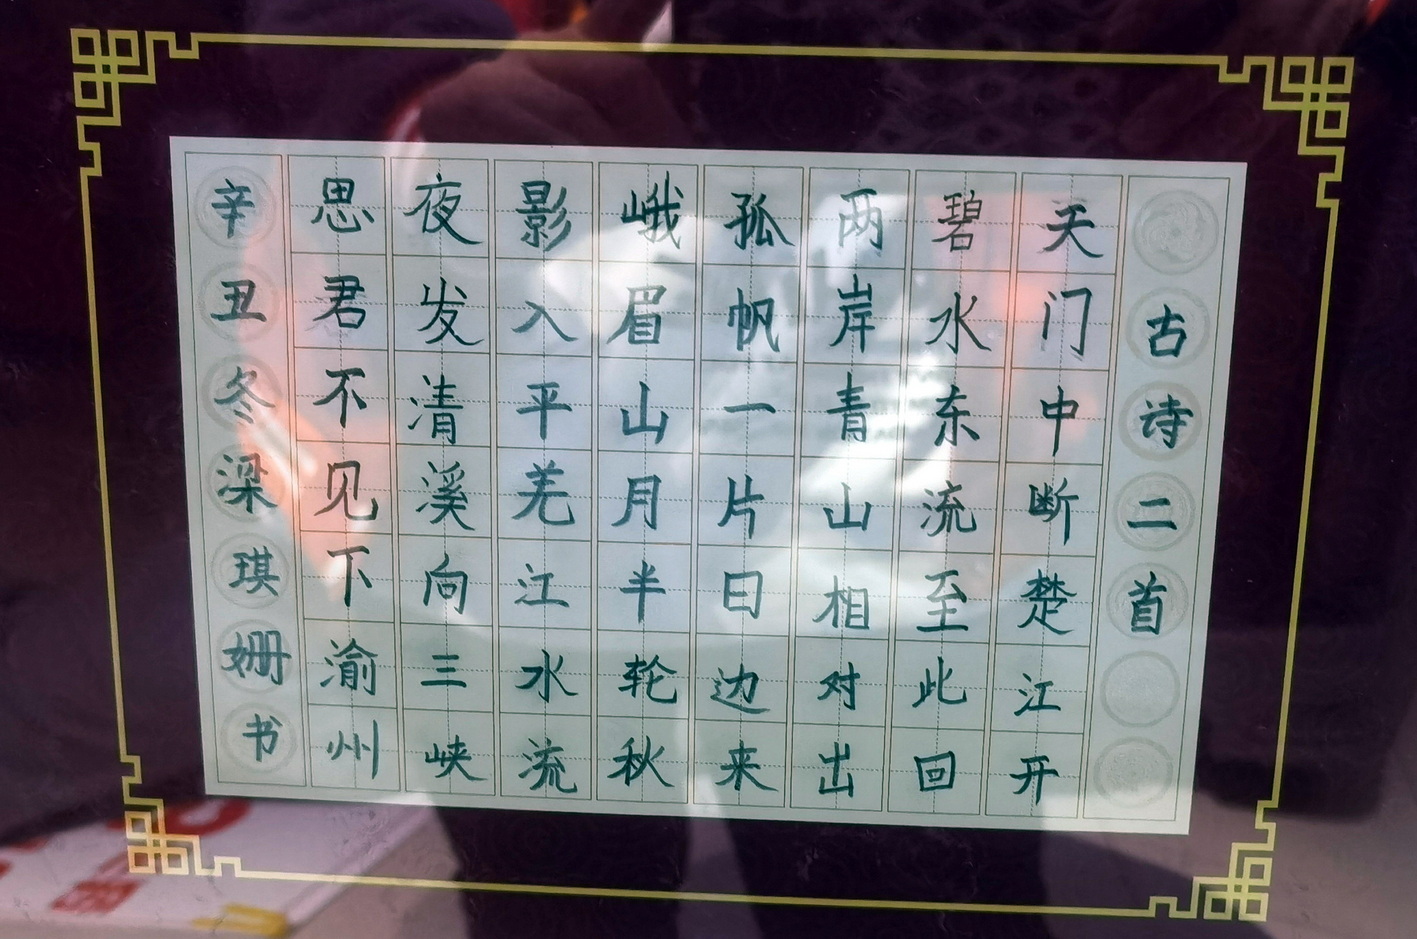 古诗二首
天门中断楚江开
碧水东流至此回
两岸青山相对出
孤帆一片日边来
峨眉山月半轮秋
影入平羌江水流
夜发清溪向三峡
思君不见下渝州
辛丑冬梁琪姗书